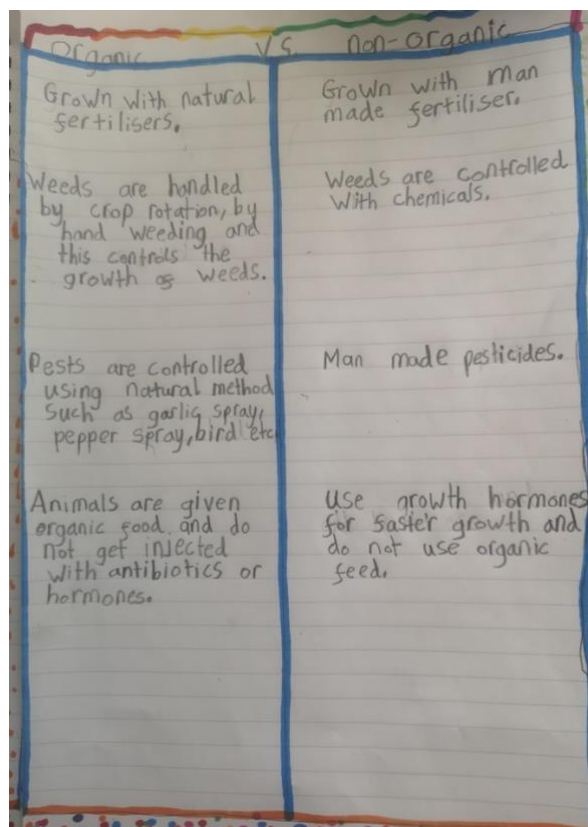 Organic VS. non-organic
Grown with natural
fertilisers.
Grown with man
made fertiliser.
Weeds are handled
by crop rotation, by
hand weeding and
this controls the
growth of weeds.
Weeds are controlled
with chemicals.
Pests are controlled
using natural method
such as garlic spray,
pepper spray, bird etc
Man made pesticides.
Animals are given
organic food and do
not get injected
with antibiotics or
hormones.
Use growth hormones
for faster growth and
do not use organic
feed.